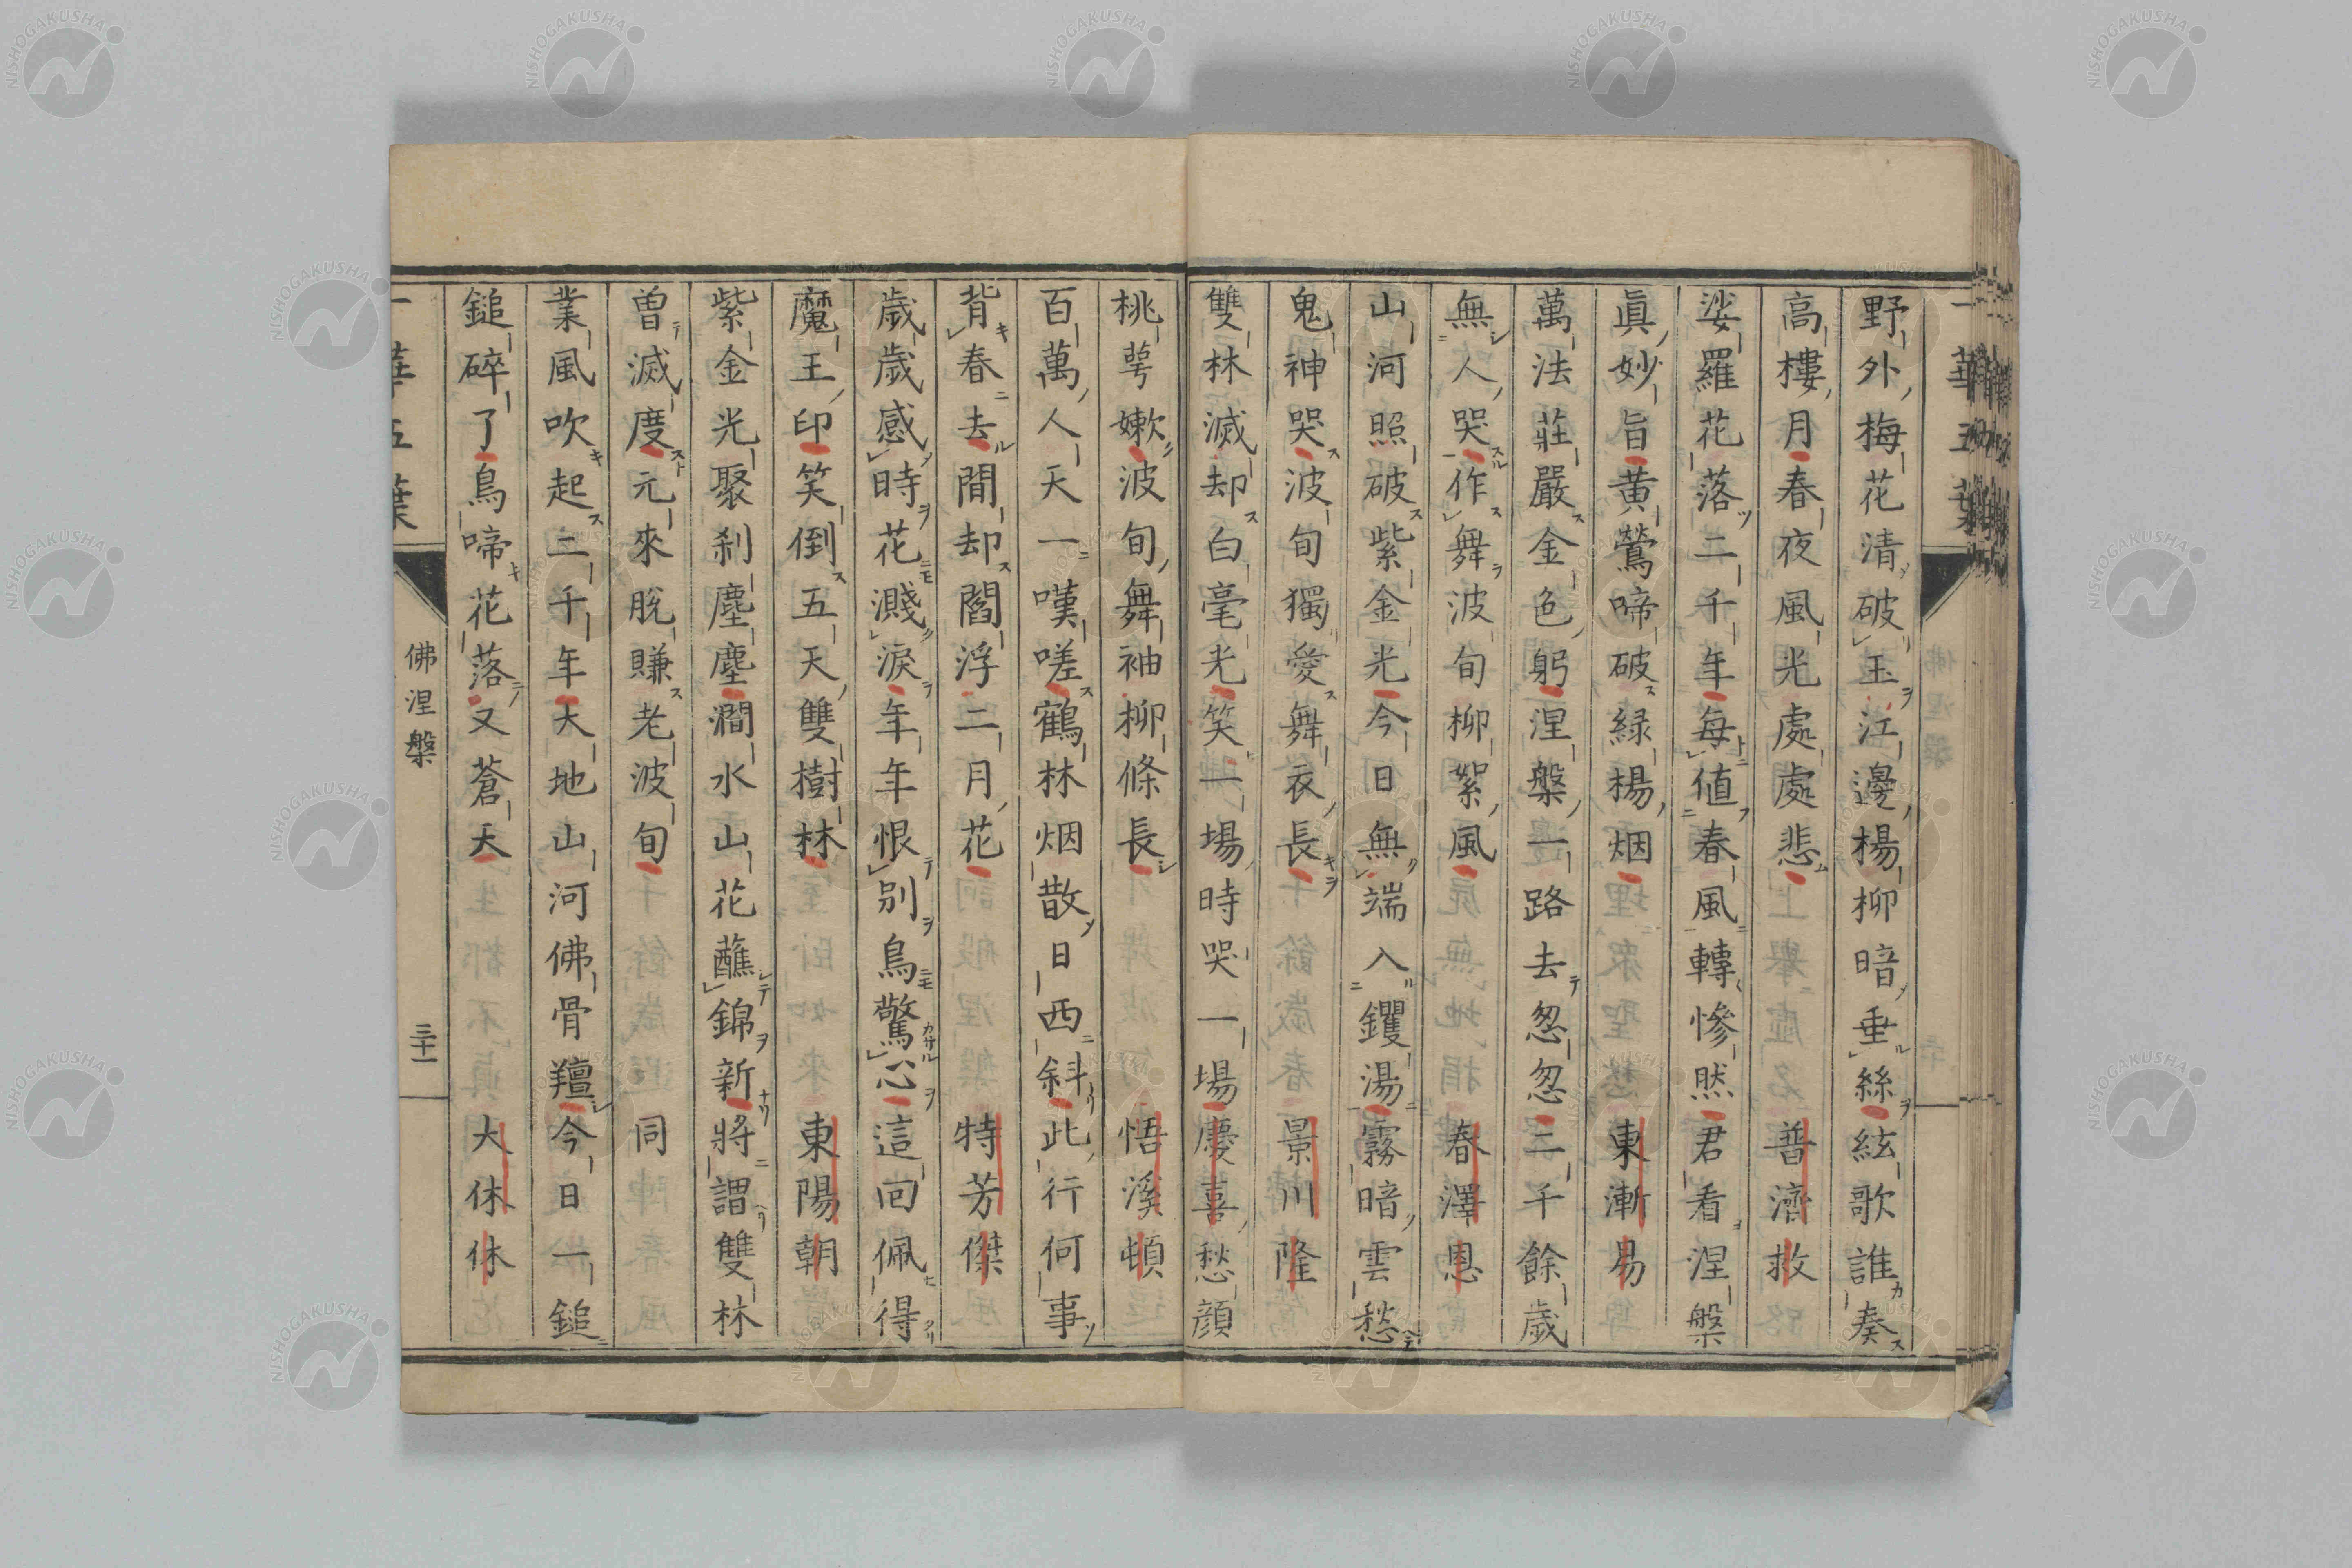 野外梅花清破玉江邊楊柳暗垂絲絃歌誰奏
高樓月春夜風光處處悲 普濟救
娑羅花落二千年毎値春風轉慘然君看涅槃
眞妙旨黄鶯啼破緑楊烟 東漸易
萬法莊嚴金色躬涅槃一路去忽忽二千餘歳
無人哭作舞波旬柳絮風 春澤恩
山河照破紫金光今日無端入鑊湯霧暗雲愁
鬼神哭波旬獨愛舞衣長 景川隆
雙林滅却白毫光笑一場時哭一場慶喜愁顔
桃萼嫰波旬舞袖柳條長 悟溪頓
百萬人天一嘆嗟鶴林烟散日西斜此行何事
背春去間却閻浮二月花 特芳傑
歳歳感時花濺淚年年恨別鳥驚心這回佩得
魔王印笑倒五天雙樹林 東陽朝
紫金光聚刹塵塵澗水山花蘸錦新將謂雙林
曽滅度元來脱賺老波旬 同
業風吹起二千年大地山河佛骨羶今日一鎚
鎚碎了鳥啼花落又蒼天 大休休
佛涅槃
三十一
一華五葉
NISHOGAKUSHA